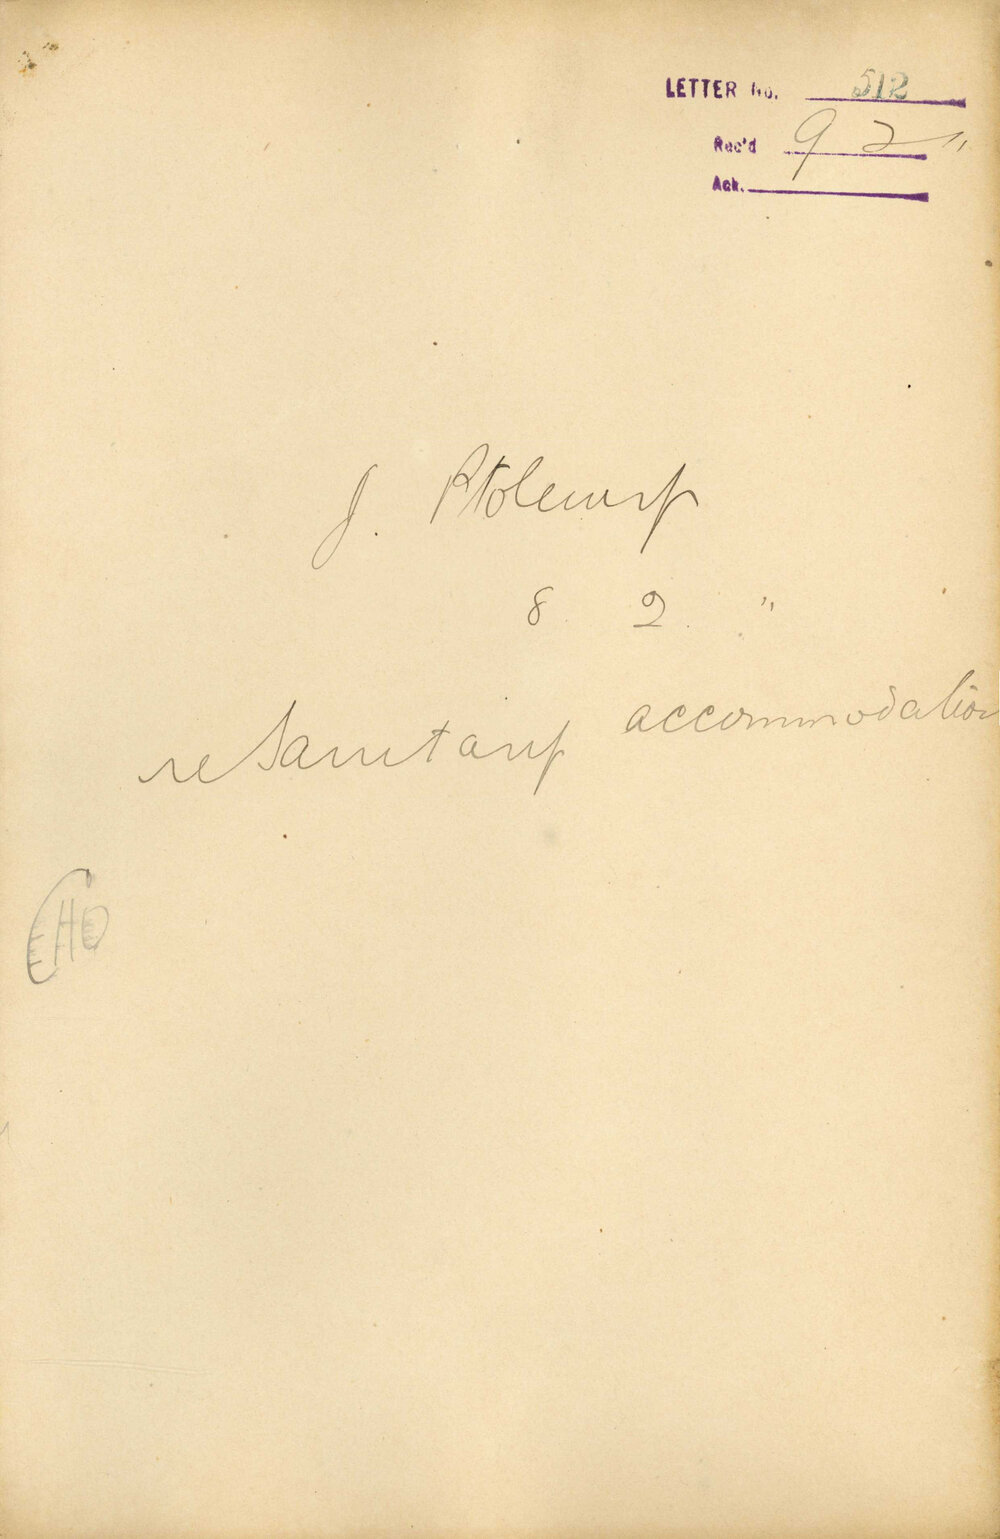 LETTER No. 512
Rec'd 9 2 "
Ack.
J. Ptolemy
8. 2. "
re Sanitary accommodation